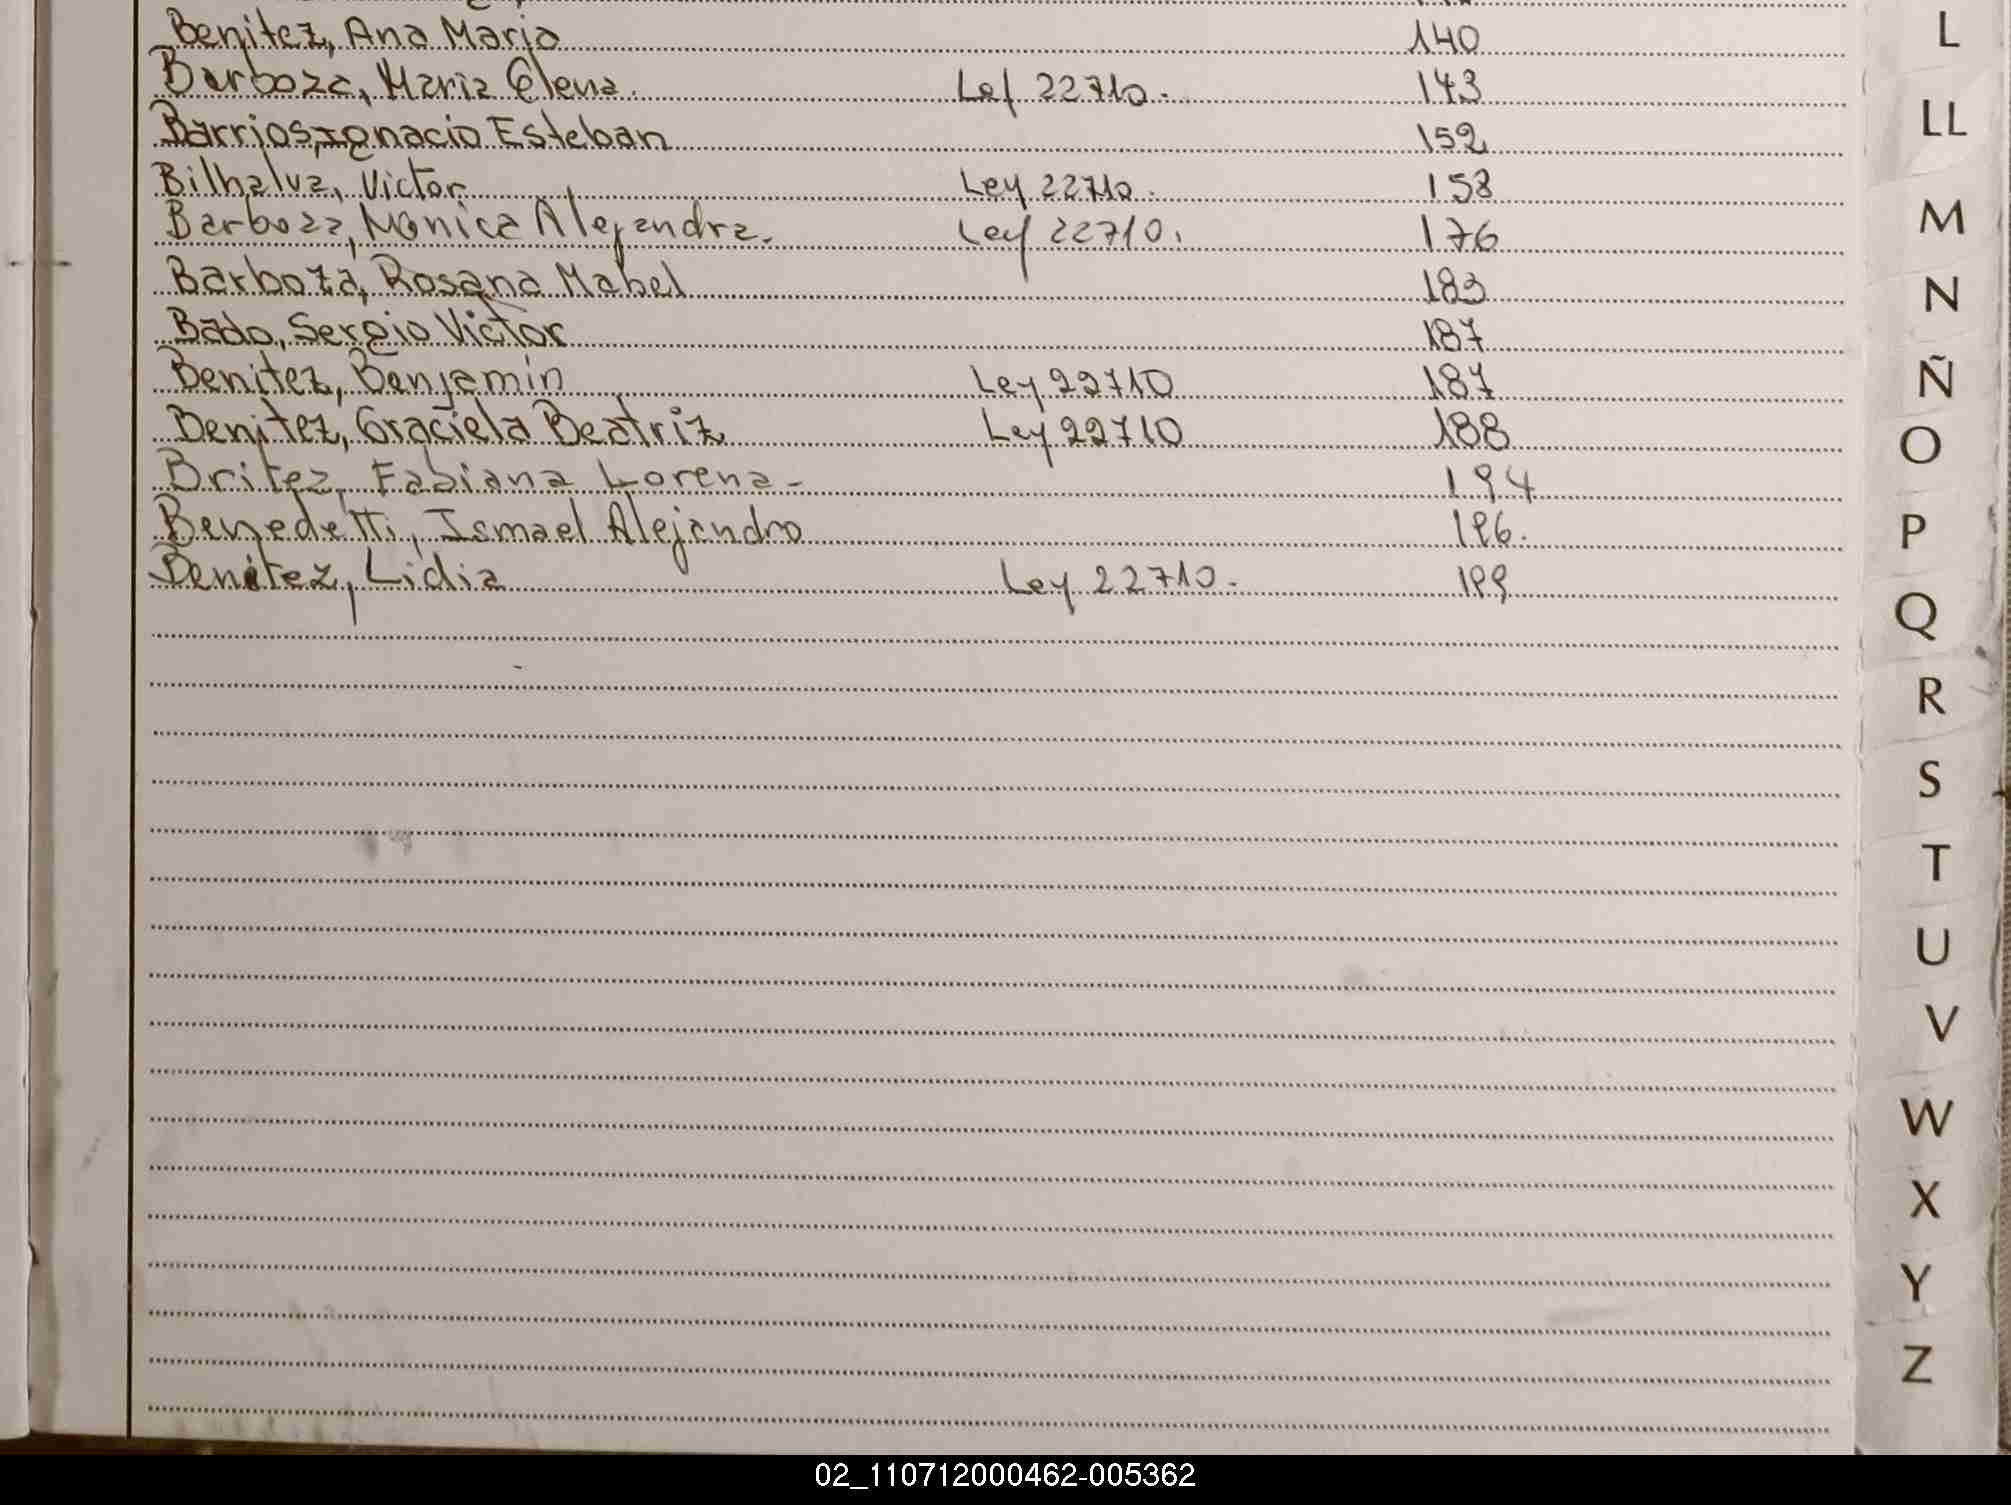 Benitez, Ana Maria 140
Barboza, Maria Elena. Ley 22710. 143
Barrios, Ignacio Esteban 152
Bilhalva, Victor Ley 22710. 158
Barboza, Monica Alejandra. Ley 22710. 176
Barboza, Rosana Mabel 183
Bado, Sergio Victor 187
Benitez, Benjamín Ley 22710 187
Benitez, Graciela Beatriz Ley 22710 188
Britez, Fabiana Lorena - 194
Benedetti, Ismael Alejandro 196.
Benitez, Lidia Ley 22710. 199
L
LL
M
N
Ñ
O
P
Q
R
S
T
U
V
W
X
Y
Z
02_110712000462-005362